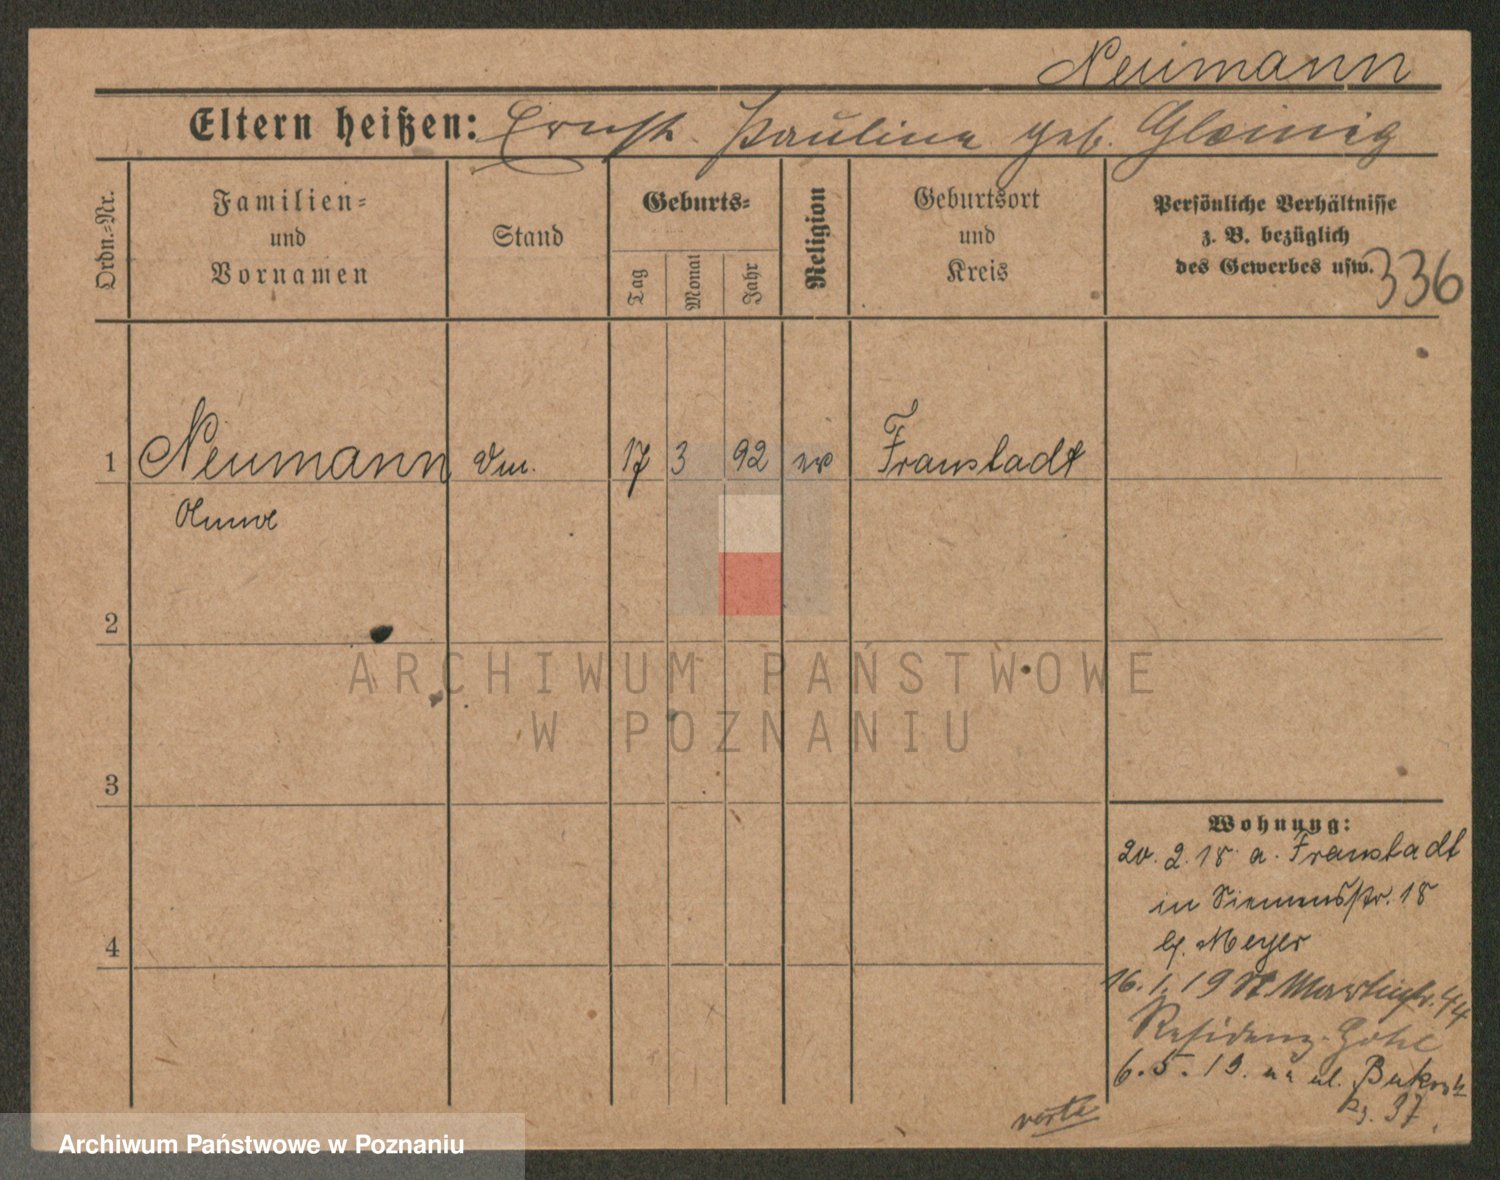 Neumann
Eltern heißen: Ernst. Pauline geb. Gleinig
Ordn.-Nr.
Familien-
und
Vornamen
Stand
Geburts-
Tag
Monat
Jahr
Religion
Geburtsort
und
Kreis
Persönliche Verhältnisse
z. B. bezüglich
des Gewerbes usw.
336
1 Neumann 17 3 92 ev Fraustadt
2
3
4
Wohnung:
20. 2. 18 a. Fraustadt
in Siemensstr. 18
b. Meyer
16. 1. 19 St Martinstr. 44
Residenz-Hotel
6. 5. 19. ul.
37.
verte
ARCHIWUM PAŃSTWOWE
W POZNANIU
Archiwum Państwowe w Poznaniu